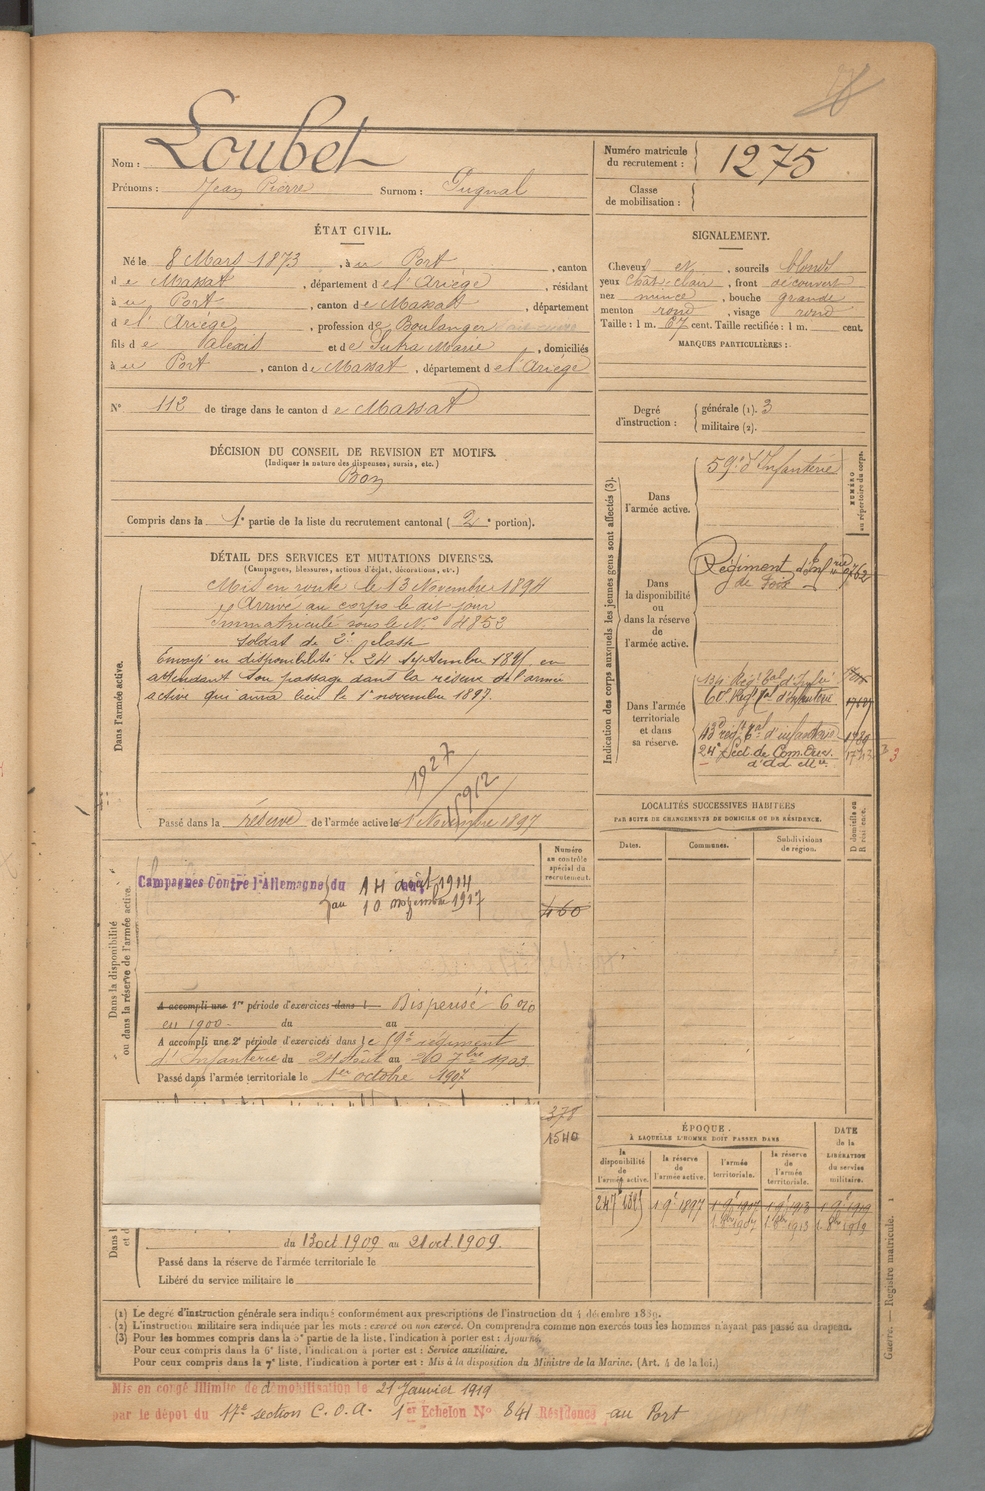 Nom : Loubet
Prénoms : Jean Pierre Surnom : Pugnal
Numéro matricule du recrutement : 1275
Classe de mobilisation :
ÉTAT CIVIL.
Né le 8 Mars 1873, à u Port, canton
d e Massat, département d e l'Ariège, résidant
à u Port, canton d e Massat, département
d e l'Ariège, profession d e Boulanger
fils d e Alexis et d e Sutra Marie, domiciliés
à u Port, canton d e Massat, département d e l'Ariège
N° 112 de tirage dans le canton d e Massat
SIGNALEMENT.
Cheveux et, sourcils blonds
yeux chât-clair, front découvert
nez mince, bouche grande
menton rond, visage rond
Taille : 1 m. 67 cent. Taille rectifiée : 1 m. cent.
MARQUES PARTICULIÈRES :
Degré d'instruction : générale (1). 3
militaire (2).
DÉCISION DU CONSEIL DE REVISION ET MOTIFS.
(Indiquer la nature des dispenses, sursis, etc.)
Bon
Compris dans la 1e partie de la liste du recrutement cantonal ( 2e portion).
DÉTAIL DES SERVICES ET MUTATIONS DIVERSES.
(Campagnes, blessures, actions d'éclat, décorations, etc.)
Dans l'armée active.
Mis en route le 13 Novembre 1894
Arrivé au corps le dit jour
Immatriculé sous le N° 4853
Soldat de 2e classe
Envoyé en disponibilité le 24 septembre 1895 en
attendant son passage dans la réserve de l'armée
active qui aura lieu le 1er novembre 1897.
1927
1912
Passé dans la réserve de l'armée active le 1er Novembre 1897
Indication des corps auxquels les jeunes gens sont affectés (3).
NUMÉRO au répertoire du corps.
Dans l'armée active.
59e d'Infanterie
Dans la disponibilité ou dans la réserve de l'armée active.
Régiment d'Infrie
de Foix
Dans l'armée territoriale et dans sa réserve.
134 Rég. tal d'Infie
60e Régt tal d'Infanterie
13e régt tal d'infanterie
24e Sect. de Com. Ouv.
d'Ad Mon
LOCALITÉS SUCCESSIVES HABITÉES
PAR SUITE DE CHANGEMENTS DE DOMICILE OU DE RÉSIDENCE.
Dates. Communes. Subdivisions de région. D domicile ou R résidence.
Dans la disponibilité ou dans la réserve de l'armée active.
Numéro au contrôle spécial du recrutement.
Campagnes Contre l'Allemagne du 14 août 1914
au 10 novembre 1917
460
A accompli une 1re période d'exercices dans l Dispensé
en 1900 du au
A accompli une 2e période d'exercices dans le 59e régiment
d'Infanterie du 24 Août au 20 7bre 1903
Passé dans l'armée territoriale le 1er octobre 1907
378
1540
du 13 oct. 1909 au 21 oct. 1909.
Passé dans la réserve de l'armée territoriale le
Libéré du service militaire le
ÉPOQUE.
À LAQUELLE L'HOMME DOIT PASSER DANS
la disponibilité de l'armée active. la réserve de l'armée active. l'armée territoriale. la réserve de l'armée territoriale. DATE de la LIBÉRATION du service militaire.
1 9e 1897 1 9e 1907 1 9e 1913 1 9e 1919
(1) Le degré d'instruction générale sera indiqué conformément aux prescriptions de l'instruction du 4 décembre 1889.
(2) L'instruction militaire sera indiquée par les mots : exercé ou non exercé. On comprendra comme non exercés tous les hommes n'ayant pas passé au drapeau.
(3) Pour les hommes compris dans la 5e partie de la liste, l'indication à porter est : Ajourné.
Pour ceux compris dans la 6e liste, l'indication à porter est : Service auxiliaire.
Pour ceux compris dans la 7e liste, l'indication à porter est : Mis à la disposition du Ministre de la Marine. (Art. 4 de la loi.)
Guerre. — Registre matricule. 1
Mis en congé illimité de démobilisation le 21 Janvier 1919
par le dépôt du 17e section C.O.A. 1er Echelon N° 841 Résidence au Port